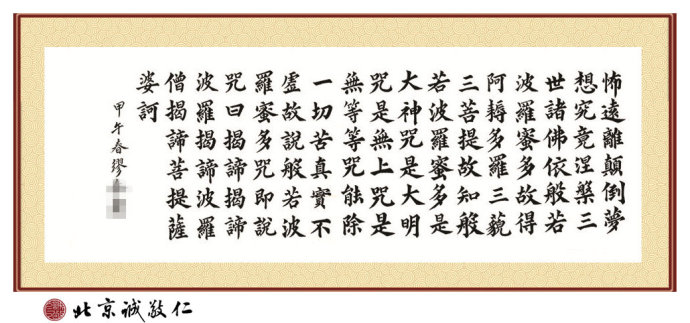 怖遠離顛倒夢
想究竟涅槃三
世諸佛依般若
波羅蜜多故得
阿耨多羅三藐
三菩提故知般
若波羅蜜多是
大神咒是大明
咒是無上咒是
無等等咒能除
一切苦真實不
虛故說般若波
羅蜜多咒即說
咒曰揭諦揭諦
波羅揭諦波羅
僧揭諦菩提薩
婆訶
甲午春繆
北京诚敬仁